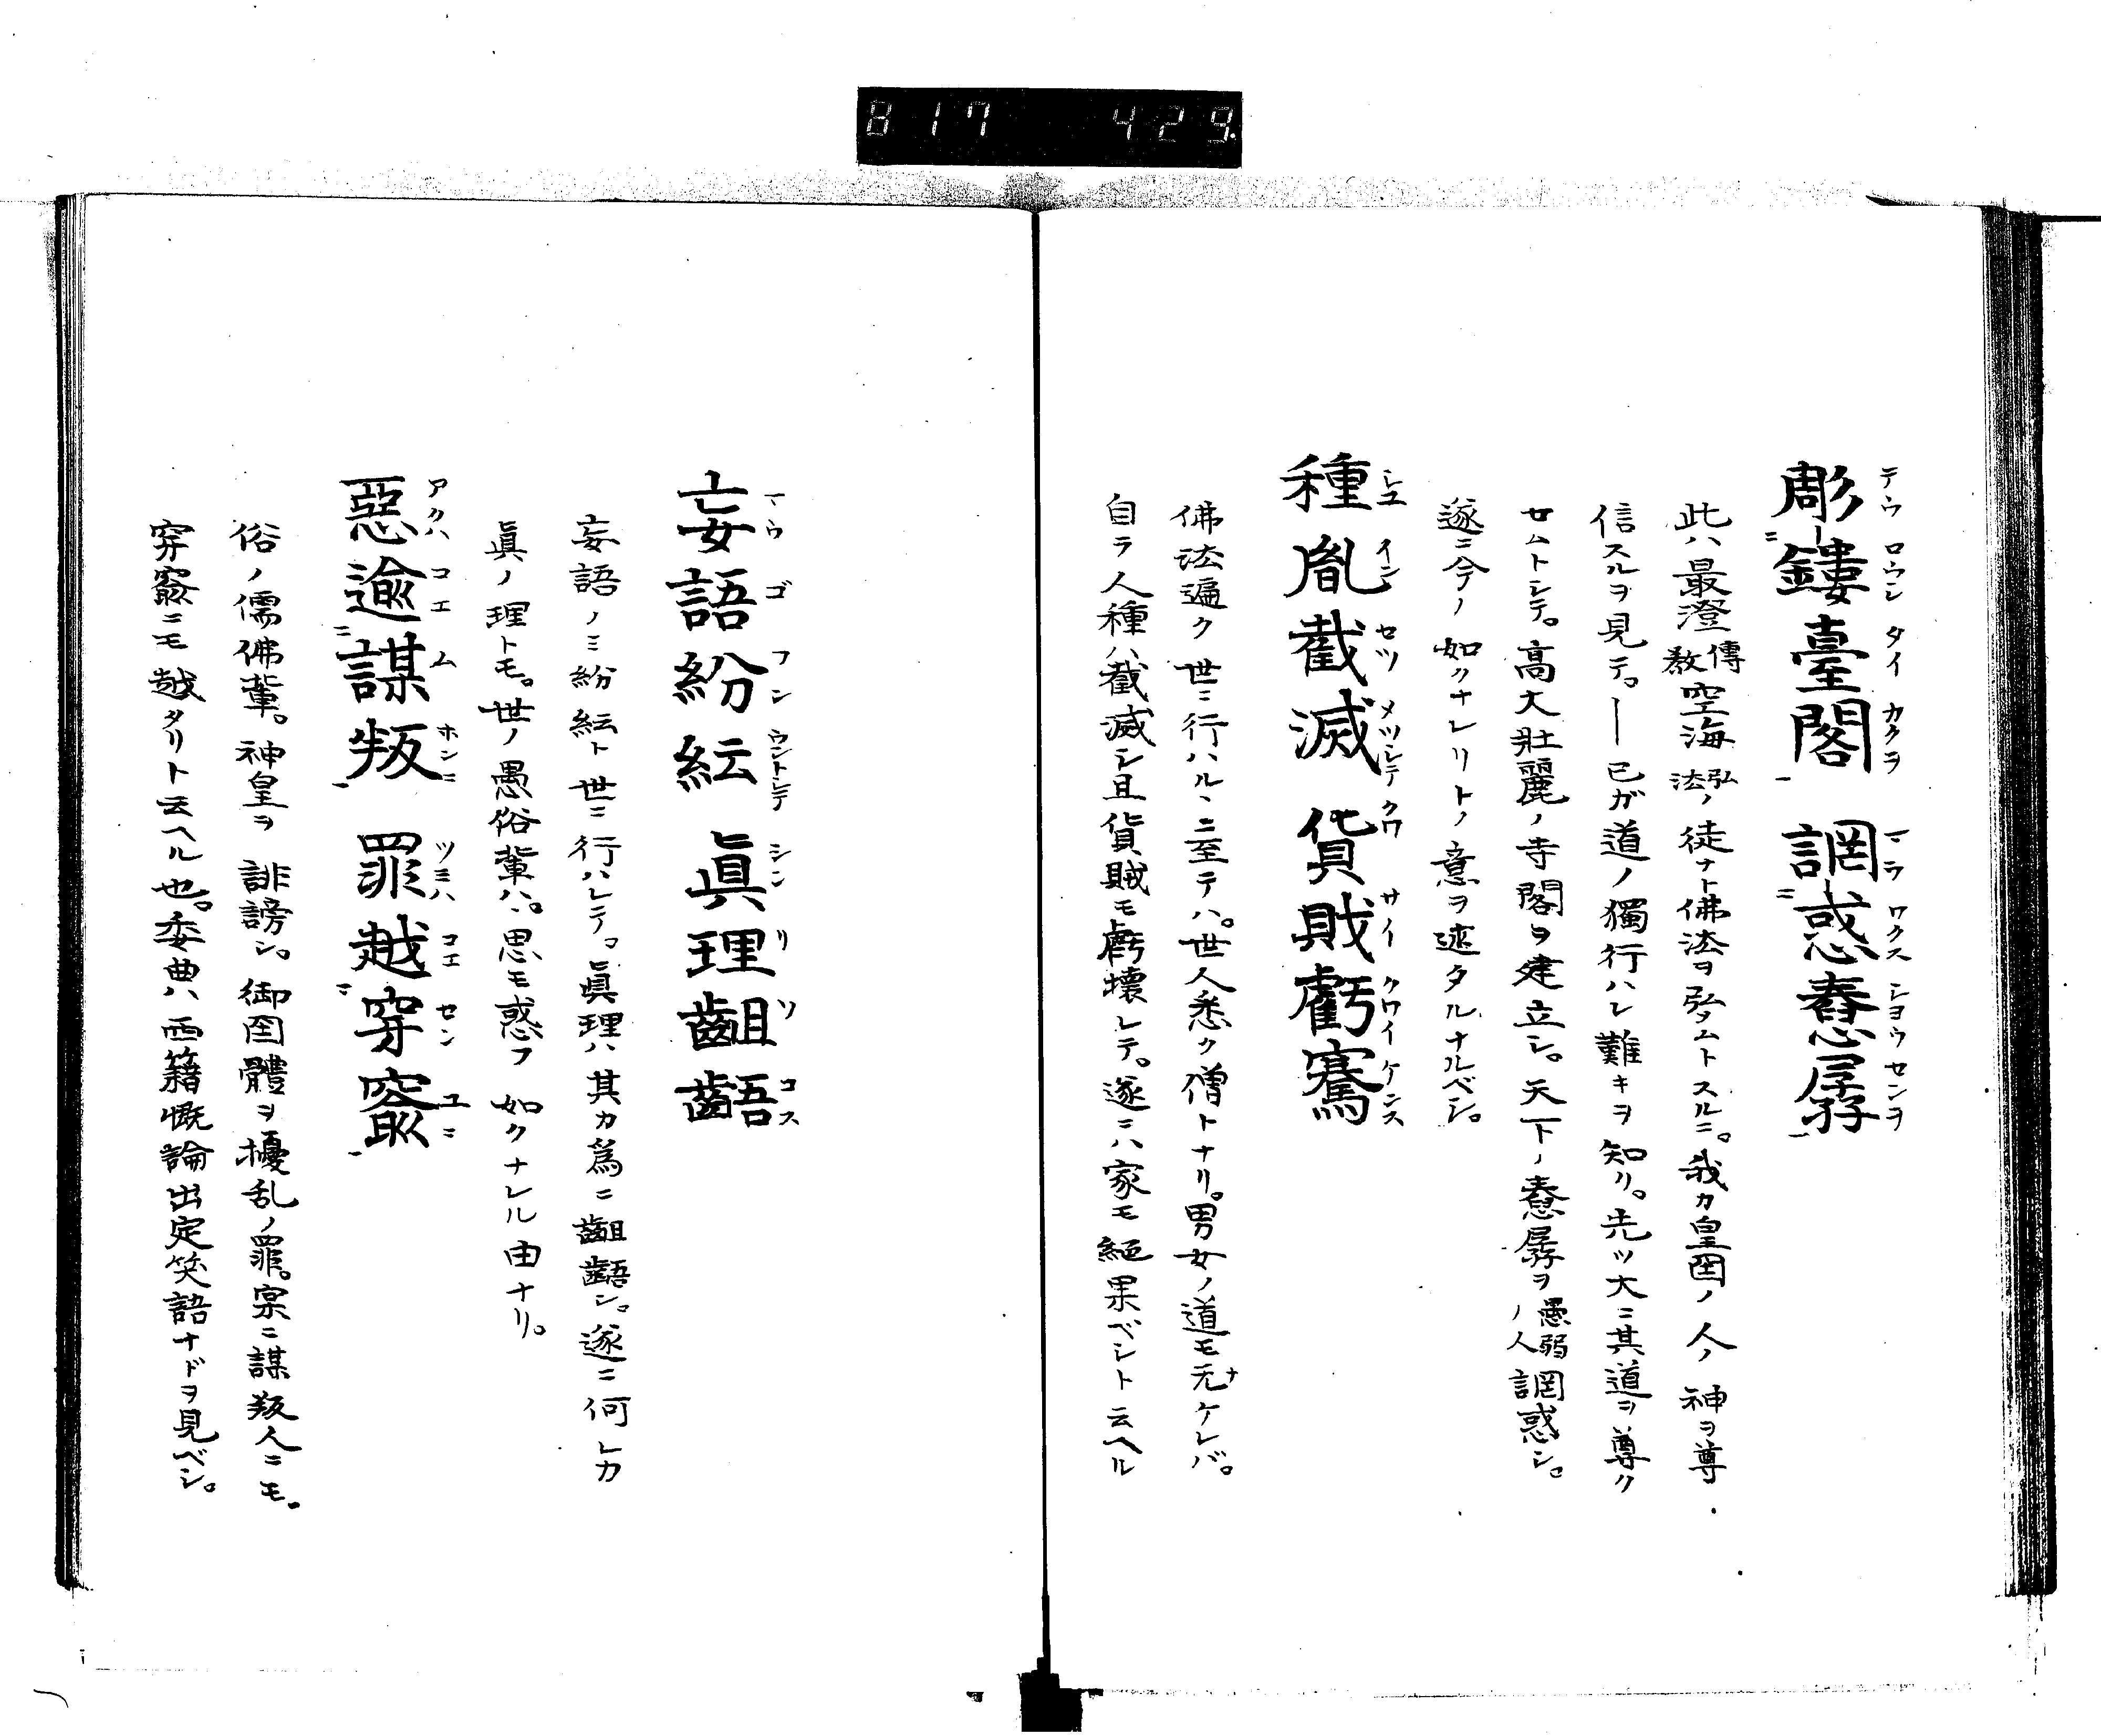 817 429
彫鏤臺閣 誷惑惷孱
此ハ最澄傳教空海弘法ノ徒ナト佛法ヲ弘ムトスルニ。我カ皇囶ノ人ノ神ヲ尊
信スルヲ見テ。｜己ガ道ノ獨行ハレ難キヲ知リ。先ツ大ニ其道ヲ尊ク
セムトシテ。高大壯麗ノ寺閣ヲ建立シ。天下ノ惷孱ヲ愚弱ノ人誷惑シ。
遂ニ今ノ如クナレリトノ意ヲ述タルナルベシ。
種胤截滅 貨賊虧騫
佛法遍ク世ニ行ハルヽニ至テハ。世人悉ク僧トナリ。男女ノ道モ无ケレバ。
自ラ人種ハ截滅シ且貨賊モ虧壞シテ。遂ニハ家モ絕果ベシト云ヘル
妄語紛紜 眞理齟齬
妄語ノミ紛紜ト世ニ行ハレテ。眞理ハ其カ爲ニ齟齬シ。遂ニ何レカ
眞ノ理トモ。世ノ愚俗輩ハ。思モ惑フ如クナレル由ナリ。
惡逾謀叛 罪越穿窬
俗ノ儒佛輩。神皇ヲ誹謗シ。御囶體ヲ擾乱ノ罪。実ニ謀叛人ニモ。
穿窬ニモ越タリト云ヘル也。委曲ハ西籍慨論出定笑語ナドヲ見ベシ。